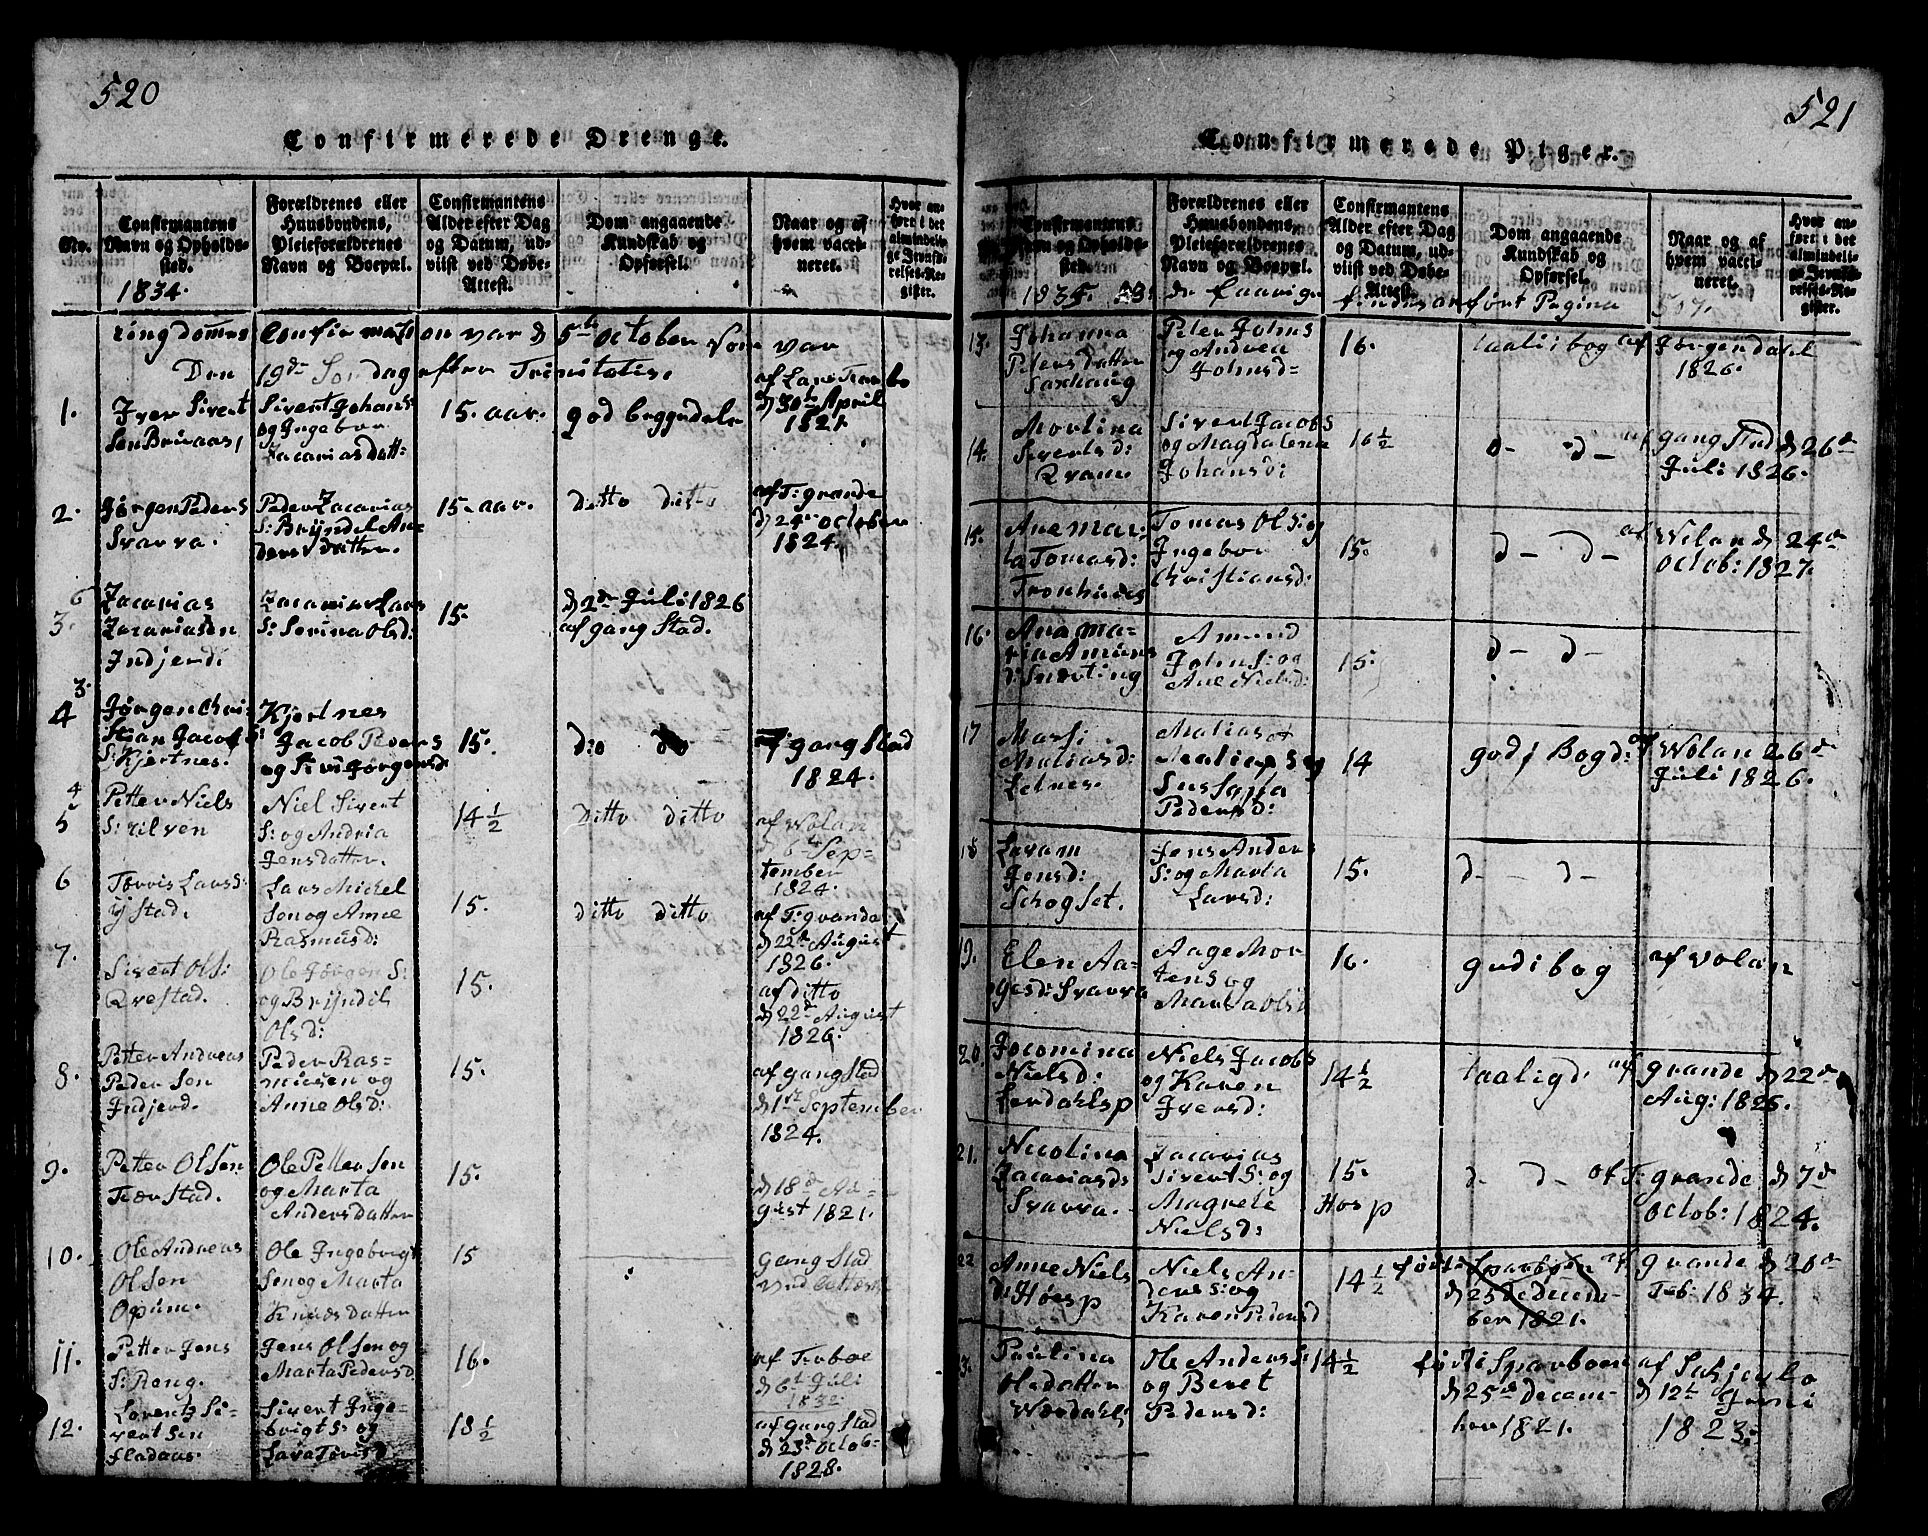 520
Confirmerede Drenge.
No.
Confirmantens
Navn og Opholds-
sted.
1834.
Forældrenes eller
Huusbondens,
Pleieforældrenes
Navn og Boepæl.
Confirmantens
Alder efter Dag
og Datum, ud-
viist ved Døbe-
Attest.
Dom angaaende
Kundskab og
Opførsel.
Naar og af
hvem vacci-
neret.
Hvor an-
ført i det
almindeli-
ge Jevnfø-
relses-Re-
gister.
ringdomes Confirmati on var d 5te October som var
Den 19de Søndag efter Trinitatis.
1.
Iver Sivert
Sen Bruaas,
Sivert Johans
og Ingebor
Zacariasdatt:
15. aar.
god beggedele
af Lars
d 30te April
1821.
2.
Jørgen Peders
Svarva.
Peder Zacarias
S: Bryndel An-
dersdatter.
15. aar.
ditto ditto
af T: grande
d 24de October
1824.
6
3.
Zacarias
Zacariasen
Indjerd.
Zacarias Lars
S: Serina Olsd:
15.
d 2de Juli 1826
af gangstad.
3.
4
Jørgen Chri
Stian Jacob
S: Kjertnes.
Kjertnes
Jacob Peders
og Siri Jørgensd
15.
dio do
af gangstad
1824.
4
5
Petter Niels
S:
Niel Sivert
S: og Andria
Jensdatter.
14 1/2
ditto ditto
af Wolan
d 6te Sep-
tember
1824.
6
Tørris Larss:
ystad.
Lars Mickel
Sen og Anne
Rasmusd:
15.
ditto ditto
af T: granda
d 22de August
1826.
7.
Sivert Ols:
Qvestad.
Ole Jørgen S:
og Bryndil
Olsd:
15.
af ditto
d 22de August
1826.
8.
Petter Andreas
Peder Sen
Indjerd.
Peder Ras-
musen og
Anne Olsd:
15.
af gangstad
d 1ste September
1824.
9.
Petter Olsen
Tværstad.
Ole Petter Sen
og Marta
Andersdatter
15.
d 18de Au-
gust 1821.
10.
Ole Andreas
Olsen
Opum.
Ole Ingebrigt
Sen og Marta
Knudsdatter
15
Gangstad
11.
Petter Jens
S: Rang.
Jens Olsen og
Marta Pedersd
16.
af
d 6te Juli
1832
12.
Lorentz Si-
vertsen
fladaas.
Sivert Inge-
brigt S: og
Lava Tørisd
18 1/2
af gangstad
d 23de Octob-
1828.
521
Confirmerede Piger.
Confirmantens
Navn og Opholds-
sted.
Forældrenes eller
Huusbondens,
Pleieforældrenes
Navn og Boepæl.
Confirmantens
Alder efter Dag
og Datum, ud-
viist ved Døbe-
Attest.
Dom angaaende
Kundskab og
Opførsel.
Naar og af
hvem vacci-
neret.
Hvor an-
ført i det
almindeli-
ge Jevnfø-
relses-Re-
gister.
de findes anført Pagina 507.
13.
Johanna
Petersdatter
Saxhaug
Peter Johns
og Andrea
Johnsd=
16.
taal: i bog
af Jørgen dahl
1826.
14.
Movlina
Sivertsd:
Qvam.
Sivert Jacobs
og Magdalena
Johansd:
16 1/2
d- d-
af gangstad d 26de
Juli 1826.
15.
Ane Mar:
ta Tomasd:
Tomas Ols: og
Ingebor
Christiansd:
15.
d- d-
af Wolan d 24de
octob: 1827.
16.
Ana Ma-
ria Amuns
d:
Amund
Johns: og
Ane Nielsd:
15.
d- d-
17
Masi
Matiasd:
Letnes.
Matias
14
god i Bogd:
af Wolan 26de
Juli 1826.
Pedersd:
18
Jensd:
Schogset.
Jens Anders
S: og Marta
Larsd:
15.
d- d-
19.
Elen Aa-
gesd: Svarva
Aage Mor
tens og
Marta Olsd
16.
god i bog
af Volan
20.
Jocomina
Nielsd:
Niels Jacobs
og Karen
Iversd:
14 1/2
taalig d.
af grande d 22de
Aug: 1826.
21.
Nicolina
Zacariasd:
Svarva.
Zacarias
Sivert S: og
Magrete
Nielsd:
15.
Hosp
d- d-
af T: grande d 7de
Octob: 1824.
22
Anne Niels
d: Hosp
Niels An-
ders S: og
Karen Pedersd
14 1/2
født i Sparboen
d 25de Decem-
ber 1821.
af grande d 26de
Feb: 1834.
3.
Paulina
Olsdatter
Ole Anders S:
og Beret
Pedersd:
14 1/2
født i Sparboen
d 25de Decem-
ber 1821.
d 12te Juni
1823.